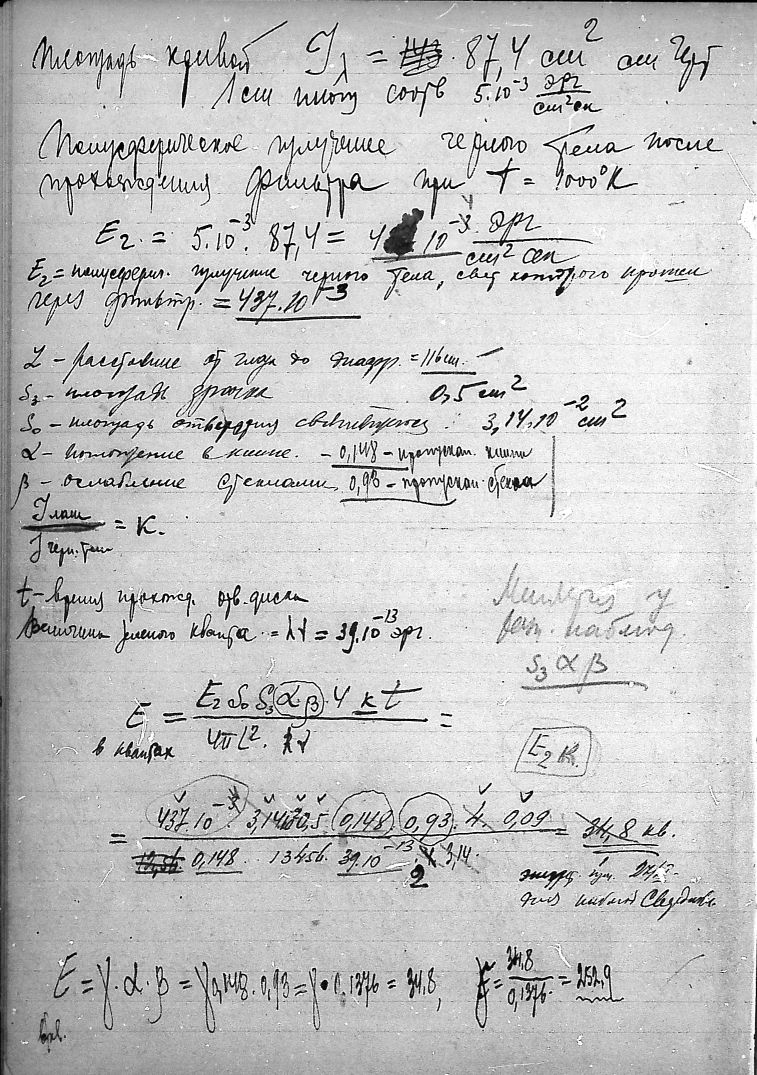 Площадь кривой J λ = 87,4 cm²
1 cm соотв 5·10⁻³ эрг/cm²сек
Полусферическое излучение черного тела после
прохождения фильтра при t = 1000°K
E₂ = 5·10⁻³ · 87,4 = 4 10⁻³ эрг/cm² сек
E₂ = полусферич. излучение черного тела, свет которого прошел
через фильтр. = 437·10⁻³
L – расстояние от глаза до диафр. = 116 cm.
S₃ – площадь зрачка 0,5 cm²
S₀ – площадь отверстия 3,14·10⁻² cm²
α – поглощение в – 0,148 – пропускан.
β – ослабление стеклами 0,93 – пропускан. стекла
J ламп / J черн. тела = K.
t – время прохожд. отв. диска
Величина зеленого кванта = λν = 39·10⁻¹³ эрг.
у
наблюд.
S₃ α β
E = E₂ S₀ S₃ α·β·4 k t / 4πL²· =
в квантах
E₂ K.
= 437·10⁻³ · 3,14 0,5 0,148 0,93 · 4 · 0,09 / 12,56 0,148 · 13456 · 39·10⁻¹³ · 4 3,14 = 34,8 кв.
2
для
E = y·α·β = y 0,148·0,93 = y·0,1376 = 34,8, y = 34,8/0,1376 = 252,9